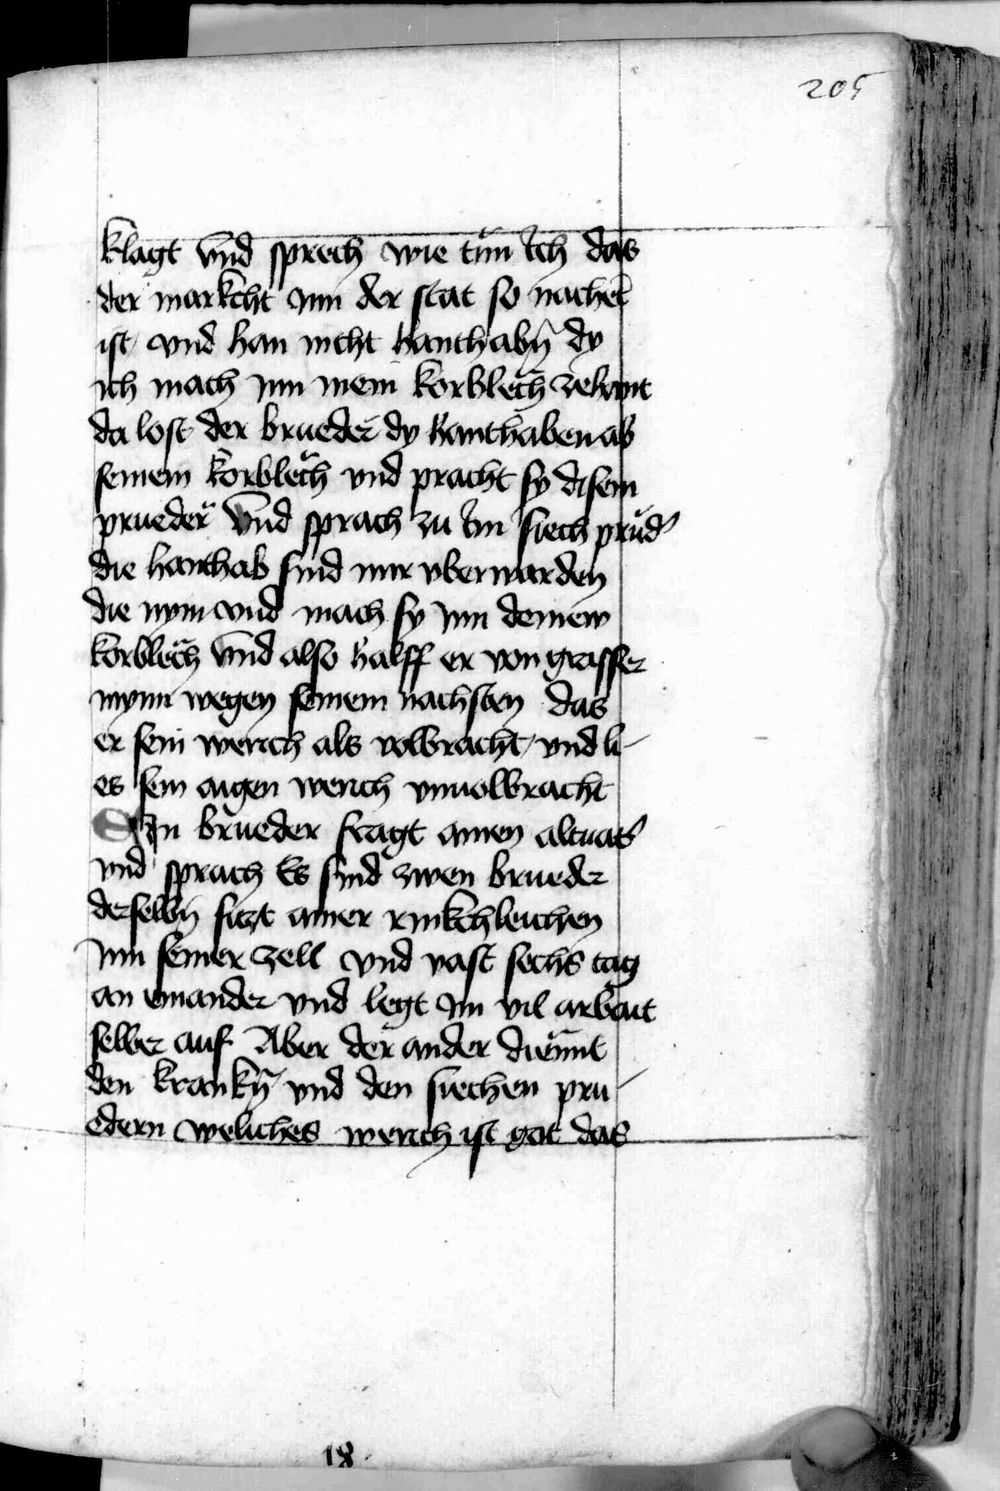 205
klagt vnd sprech wie tüm Ich das
der markcht ynn der stat so nachet
ist vnd han nicht hanthabn̄ dy
ich mach ynn mein korblech
da lost der brueder dy hanthaben ab
seinem korblech vnd pracht sy disem
prueder Vnd sprach zu Im siech prud'
die hanthab sind mir vberwarden
die nym vnd mach sy ynn deinew
korblech Vnd also halff er von grasser
mynn wegen seinem nachsten das
er sein werich als volbracht vnd li-
es sein aigen werich vnuolbracht
Ein brueder fragt ainen altuat'
vnd sprach Es sind zwen brueder
derselbn̄ sitzt ainer rinkchleichen
ynn seiner zell vnd vast sechs tag
an einander vnd legt im vil arbait
selber auf Aber der ander diennt
den krankn̄ vnd den siechen pru-
edern weliches werich ist got das
18